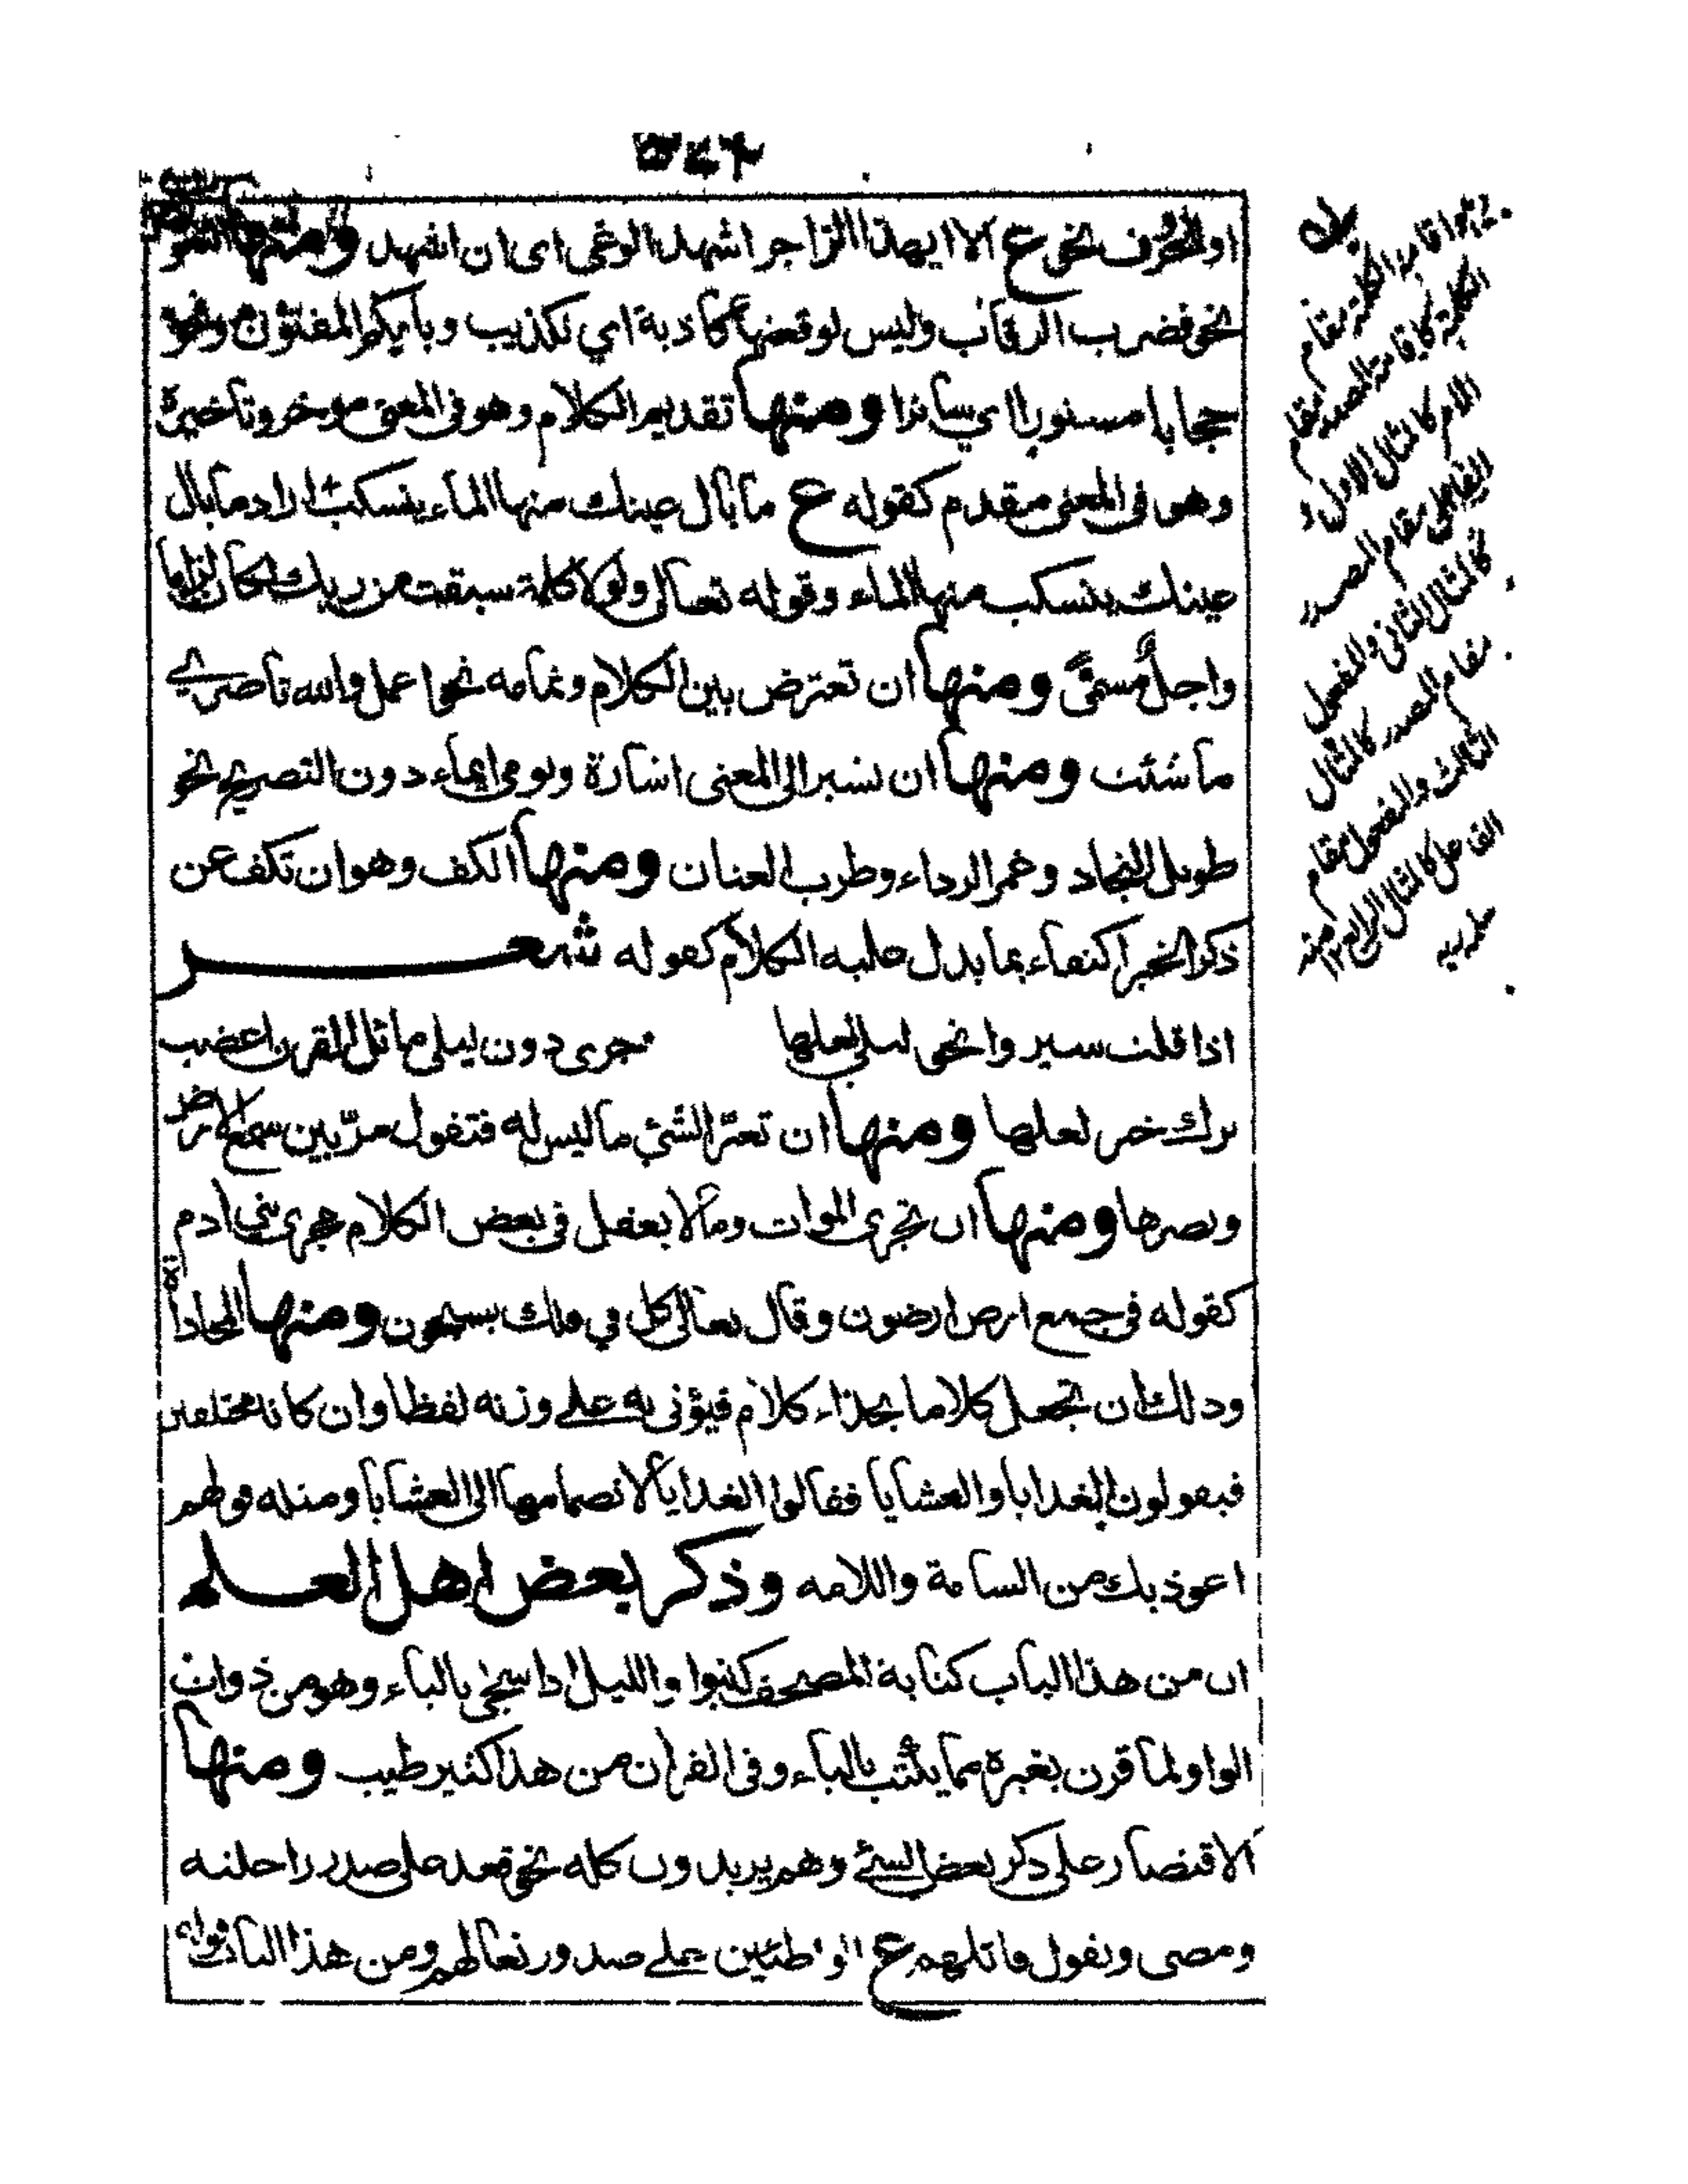 او الحرف نحو ع الا ايهذا الزاجر اشهد الوغى اى ان اشهد ومنها
نحو فضرب الرقاب وليس لوقعتها كاذبة اي تكذيب وبايكم المفتون ونحو
حجابا مستورا اي ساترا ومنها تقديم الكلام وهو فى المعنى موخر وتاخيره
وهو فى المعنى مقدم كقوله ع ما بال عينك منها الماء ينسكب اراد ما بال
عينك ينسكب منها الماء وقوله تعالى ولولا كلمة سبقت من ربك لكان لزاما
واجل مسمى ومنها ان تعترض بين الكلام وتمامه نحو اعمل والله ناصري
ما شئت ومنها ان تشير الى المعنى اشارة وتومى ايماء دون التصريح نحو
طويل النجاد وغمر الرداء وطرب العنان ومنها الكف وهو ان تكف عن
ذكر الخبر اكتفاء بما يدل عليه الكلام كقوله شعر
اذا قلت سيروا نحو ليلى لعلها جرى دون ليلى مائل القرن اعضب
ترك خبر لعلها ومنها ان تعير الشئ ما ليس له فتقول مر بين سمع الارض
وبصرها ومنها ان تجرى الموات وما لا يعقل فى بعض الكلام مجرى بني ادم
كقوله فى جمع ارض ارضون وقال تعالى كل في فلك يسبحون ومنها المحاذاة
وذلك ان تجعل كلاما بحذاء كلام فيؤتى به على وزنه لفظا وان كانا مختلفين
فيقولون الغدايا والعشايا فقالوا الغدايا لانضمامها الى العشايا ومثله قولهم
اعوذ بك من السامة واللامه وذكر بعض اهل العلم
ان من هذا الباب كتابة المصحف كتبوا والليل اذا سجى بالياء وهو من ذوات
الواو لما قرن بغيره مما يكتب بالياء وفى القران من هذا كثير طيب ومنها
الاقتصار على ذكر بعض الشئ وهم يريدون كله نحو قعد على صدر راحلته
ومضى ويقول قائلهم ع الواطئين على صدور نعالهم ومن هذا الباب
اقامة الكلمة مقام
الكلمة كاقامة المصدر مقام
الامر كالمثال الاول و
الفاعل مقام المصدر
كالمثال الثانى والمفعول
مقام المصدر كالمثال
الثالث والمفعول مقام
الفاعل كالمثال الرابع ١٢ منه